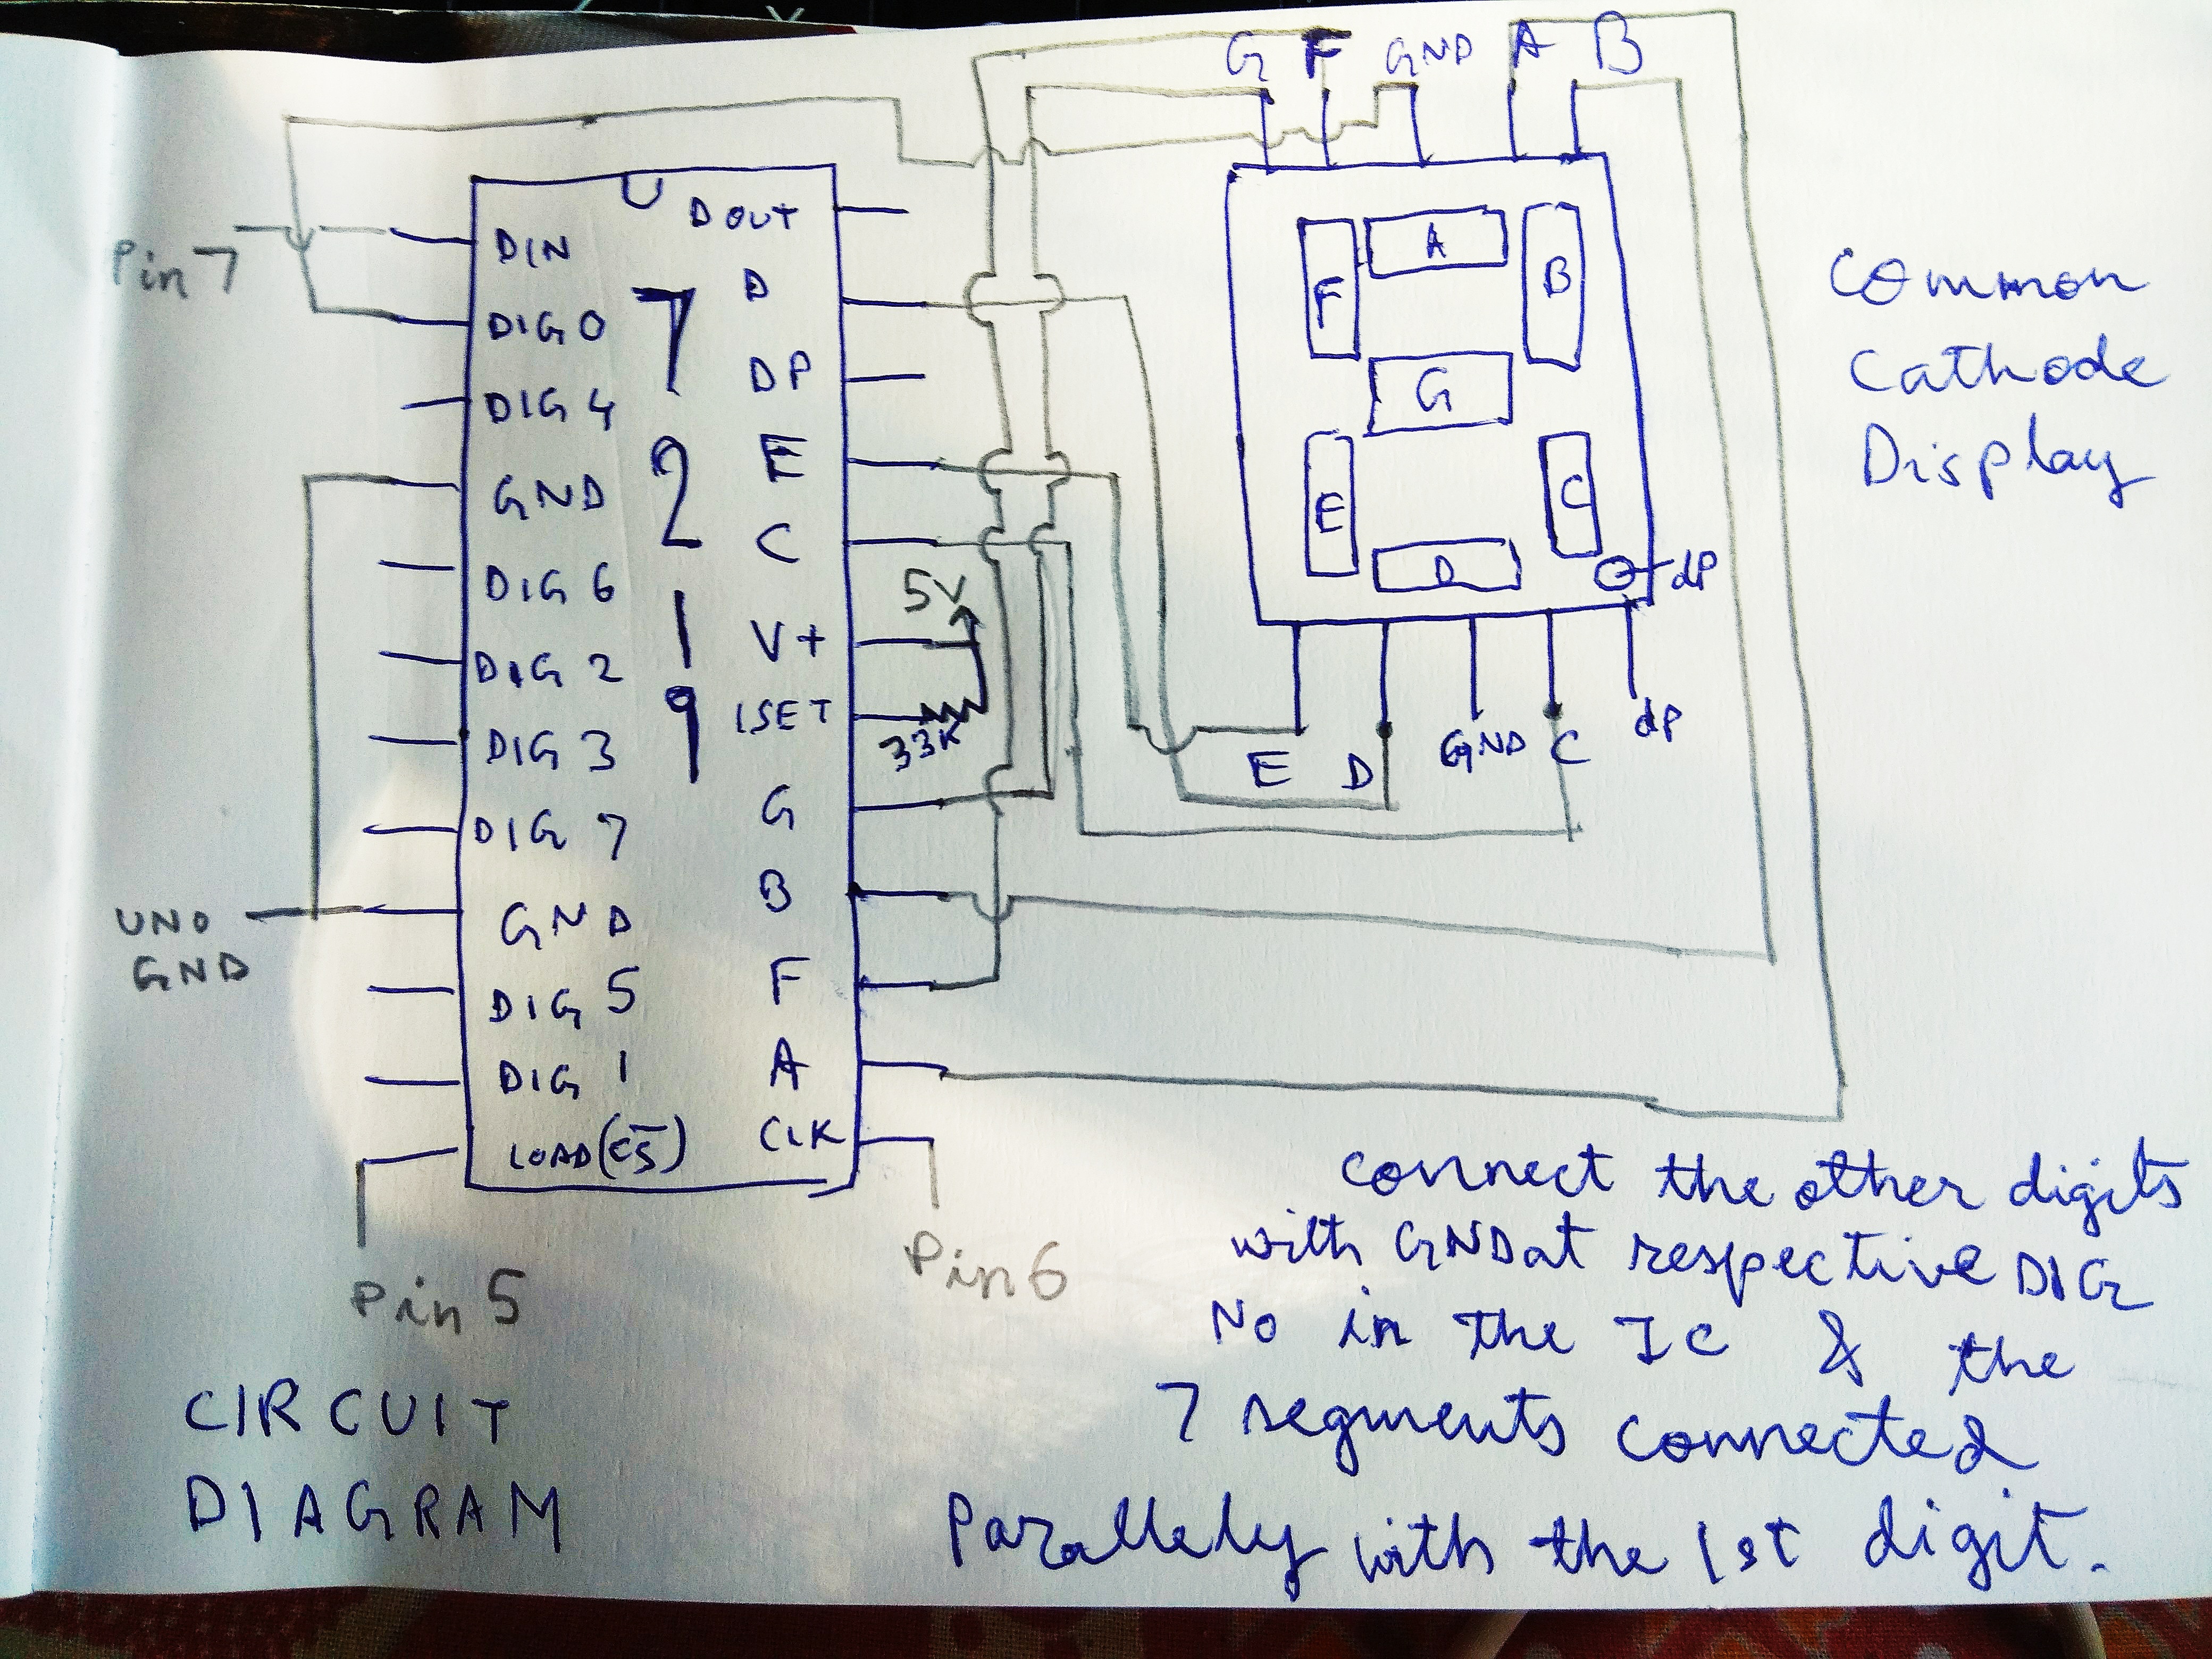 G F GND A B
Pin 7
DIN
DIG 0
DIG 4
GND
DIG 6
DIG 2
DIG 3
DIG 7
GND
DIG 5
DIG 1
LOAD(CS)
UNO
GND
Pin 5
7
2
1
9
DOUT
D
DP
E
C
V+
ISET
G
B
F
A
CLK
5V
33K
Pin 6
A
F
B
G
E
C
D
dP
E D GND C dP
Common
Cathode
Display
connect the other digits
with GND at respective DIG
No in the IC & the
7 segments connected
Parallely with the 1st digit.
CIRCUIT
DIAGRAM